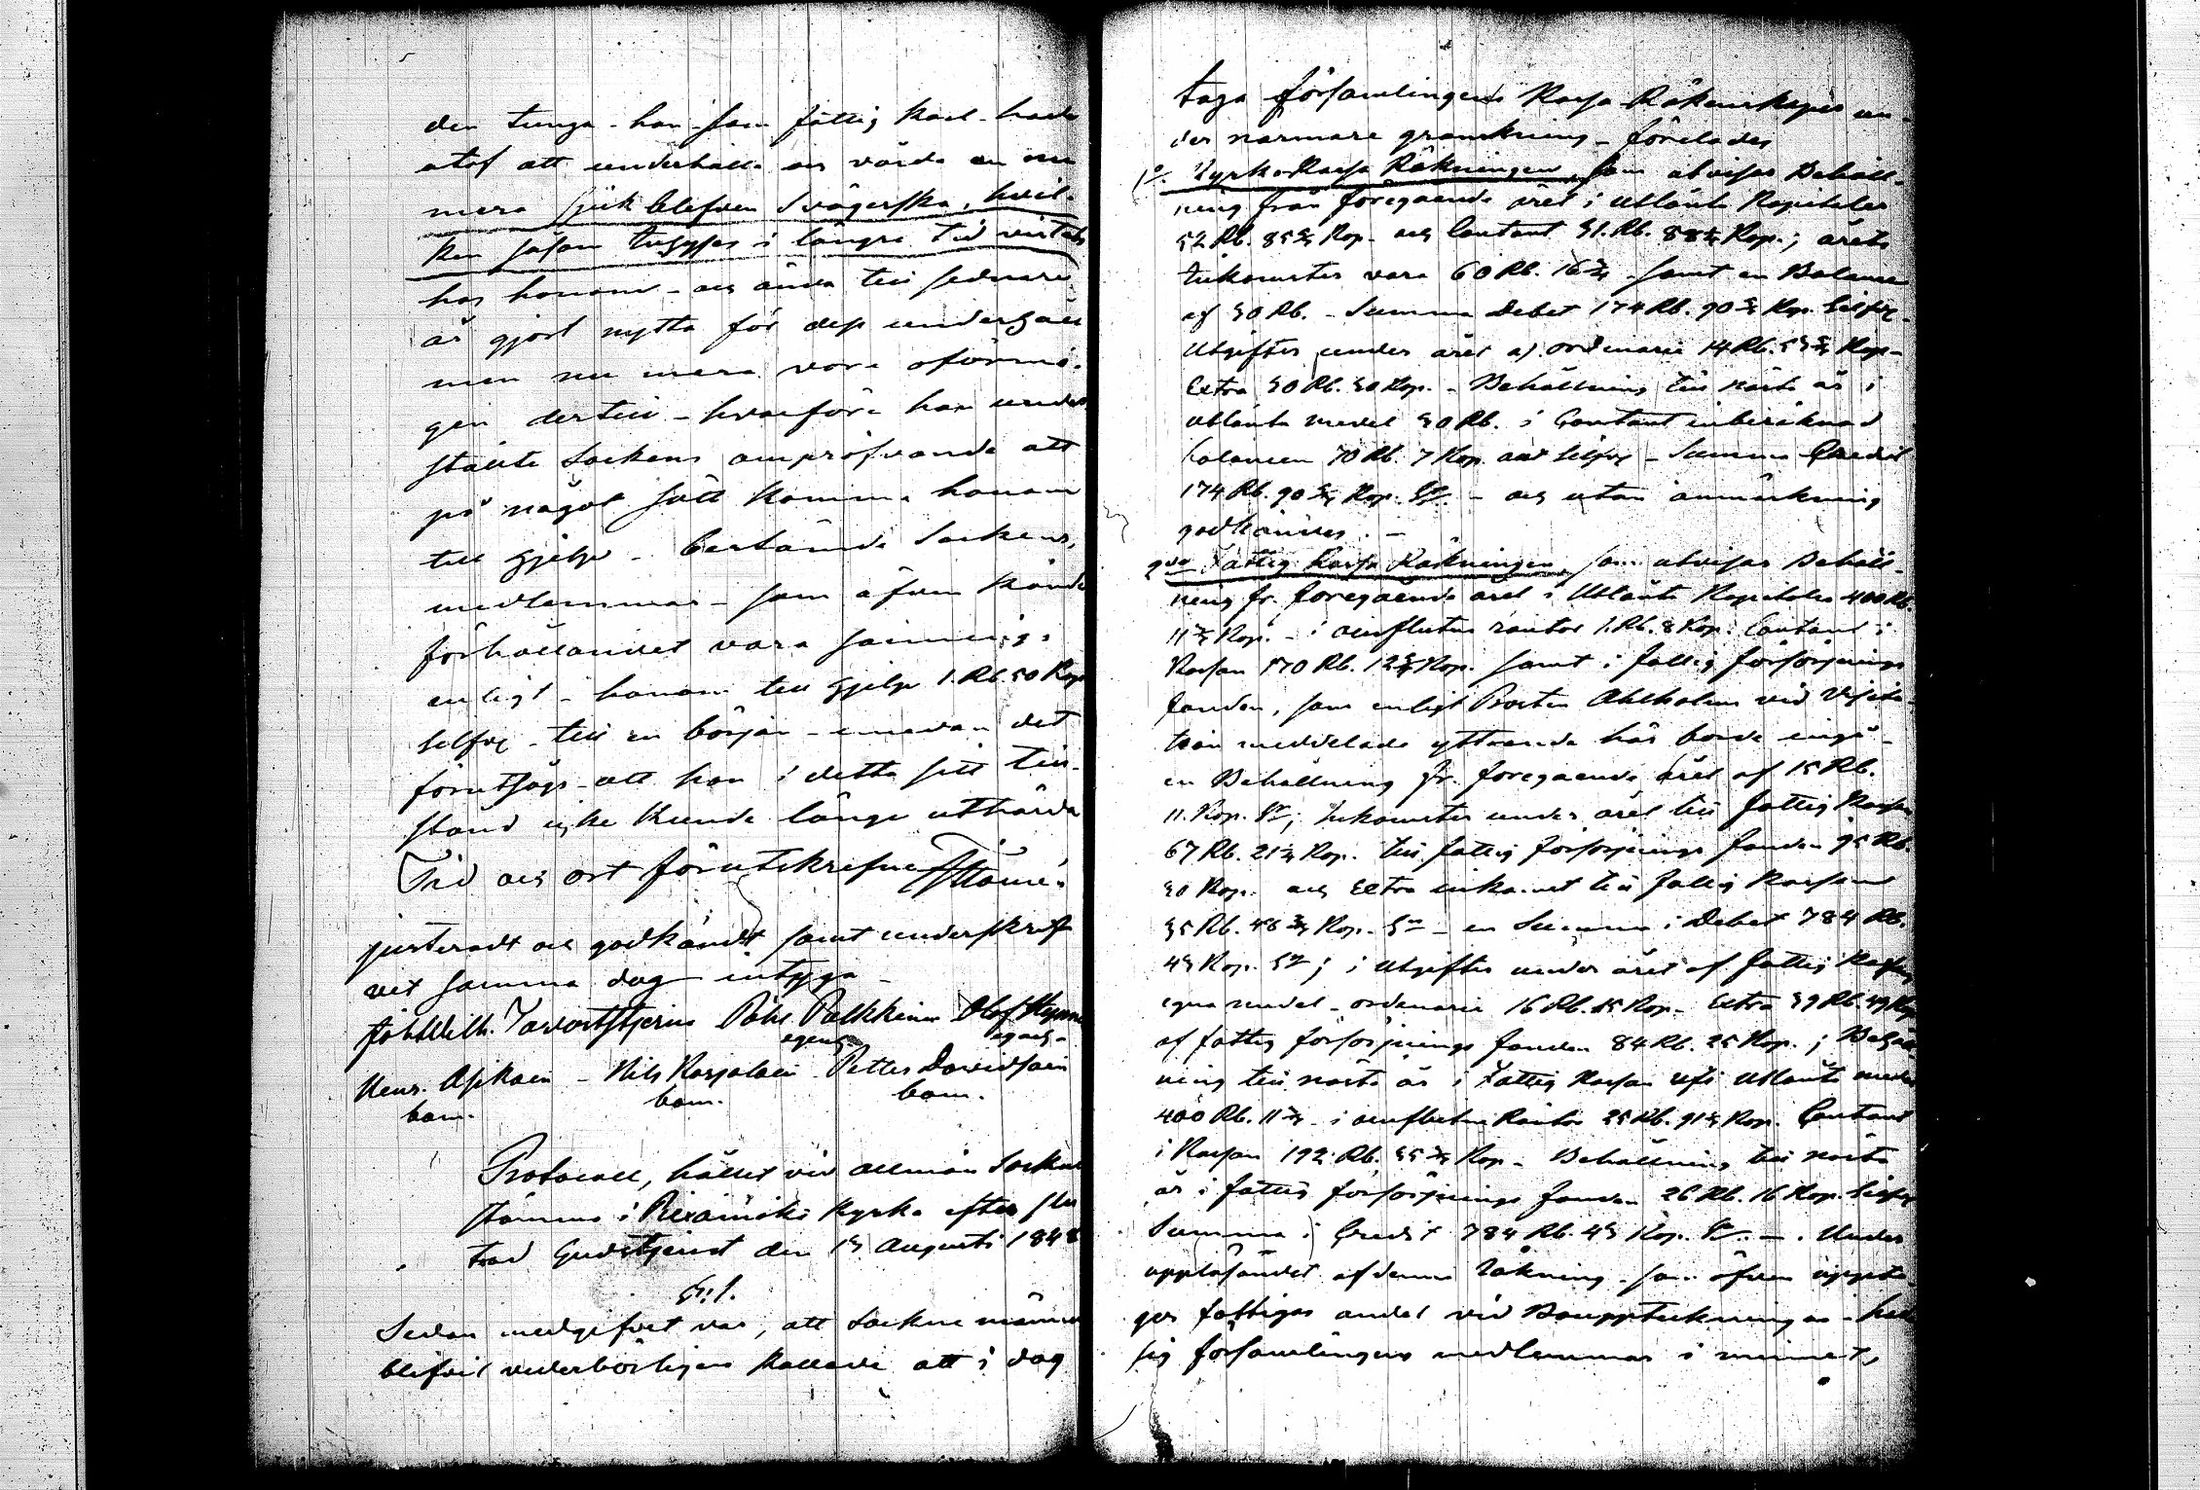 den tunga - han som fattig karl - hade
utaf att underhålla och vårda en nu
mera sjuk blefven Svägerska, hvil-
ken såsom  i längre tid vistats
hos honom - och ända till sednare
år gjort nytta för dess undergåll
men nu mera vore oförmö-
gen dertill - hvarföre han under
ställte Sockens ompröfvande att
på något sätt komma honom
till hjelp - Bestämde Sockens
medlemmar - som äfven kände
förhållandet vara sannings-
enligt - honom till hjelp 1. Rb. 50 Kop
Silfver - till en början - emedan det
förutsågs - att han i detta sitt till-
stånd icke kunde länge uthärda
Tid och ort förutskrefne
justeradt och godkändt samt underskrif
vet samma dag intyga -
Joh. Wilh. Påhl Pulkkinen Olof
egenh. egenh.
Henr. Asikain - Nils - Petter Davidsain
bom. bom. bom.
Protocoll, hållet vid allmän Sockne
stämma i kyrka efter slu
tad Gudstjenst den 13 Augusti 1848
§. 1.
Sedan medgifvet var, att Sockne männen
blifvit vederbörligen kallade att i dag
taga församlingens Kassa Räkenskaper un-
der närmare granskning - förelades
1o. Kyrko Kassa Räkningen, som utvisar Behåll-
ning från föregående året i utlånte Kapitaler
52 Rb. 85 Kop - och Contant 31. Rb. 88 Kop.; årets
inkomster vara 60 Rb. 16 - samt en Balance
af 30 Rb. - Summa Debet 174 Rb. 90 Kop. Silfver -
Utgifter under året a) ordinarie 14 Rb. Kop -
Extra 30 Rb. 30 Kop. - Behållning till nästa år i
utlånta medel 30 Rb. i Contant inberäknad
balancen 70 Rb. 7 Kop. Silfver - Summa Credit
174 Rb. 90 Kop. Sr. - och utan anmärkning
godkändes. -
2do Fattig Kassa Räkningen, som utvisar Behåll-
ning fr. föregående året i Utlånte Kapitaler 400 Rb.
11 Kop. - i räntor 1. Rb. 8 Kop. Contant i
Kassan 170 Rb. 12 Kop. samt i fattig försörjnings
fonden, som enligt Prosten Ahlholms vid Visita-
tion meddelade yttrande här borde ingå -
en Behållning fr. föregående året af 15 Rb.
11. Kop. Sr; inkomster under året till fattig Kassan
67 Rb. 21 Kop. till fattig försörjnings fonden 95 Rb.
30 Kop. och Extra inkomst till fattig Kassan
35 Rb. 48 Kop. Sr - en Summa i Debet 784 Rb.
43 Kop. Sr; i Utgifter under året af fattig Kassans
egna medel - ordinarie 16 Rb. 15 Kop - Extra 39 Rb. 49 Kop
af fattig försörjnings fonden 84 Rb. 25 Kop.; Behåll
ning till nästa år i Fattig Kassan Utlånte medel
400 Rb. 11 - i Räntor 25 Rb. 91 Kop. Contant
i Kassan 192 Rb. 55 Kop - Behållning till nästa
år i fattig försörjnings fonden 26 Rb. 16 Kop. Silfver
Summa i Credit 784 Rb. 43 Kop. Sr. - . Under
uppläsandet af denna räkning - som äfven uppta-
ger fattigas andel vid Bouppteckningar -
sig församlingens medlemmar i minnet,